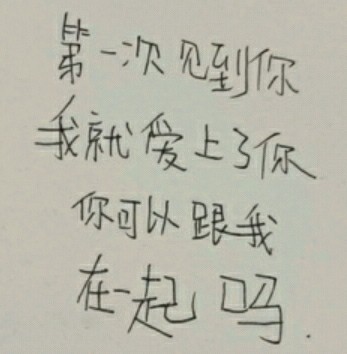 第一次见到你
我就爱上了你
你可以跟我
在一起吗.